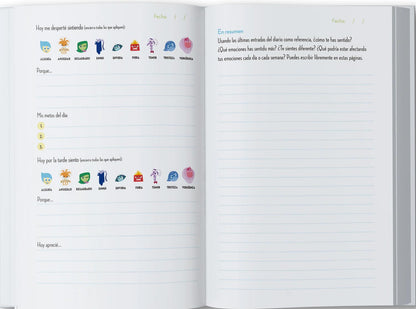 Fecha / /
Hoy me desperté sintiendo (encierra todas las que apliquen):
ALEGRÍA ANSIEDAD DESAGRADO ENNUI ENVIDIA FURIA TEMOR TRISTEZA VERGÜENZA
Porque...
Mis metas del día
1.
2.
3.
Hoy por la tarde siento (encierra todas las que apliquen):
ALEGRÍA ANSIEDAD DESAGRADO ENNUI ENVIDIA FURIA TEMOR TRISTEZA VERGÜENZA
Porque...
Hoy aprecié...
Fecha / /
En resumen
Usando las últimas entradas del diario como referencia, ¿cómo te has sentido?
¿Qué emociones has sentido más? ¿Te sientes diferente? ¿Qué podría estar afectando
tus emociones cada día o cada semana? Puedes escribir libremente en estas páginas.